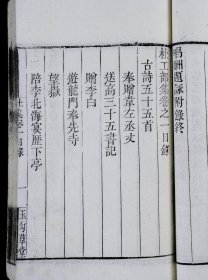 杜工部集卷之一目錄
古詩五十五首
奉贈韋左丞丈
送高三十五書記
贈李白
遊龍門奉先寺
望嶽
陪李北海宴歷下亭
杜集卷一目錄
一
玉勾草堂